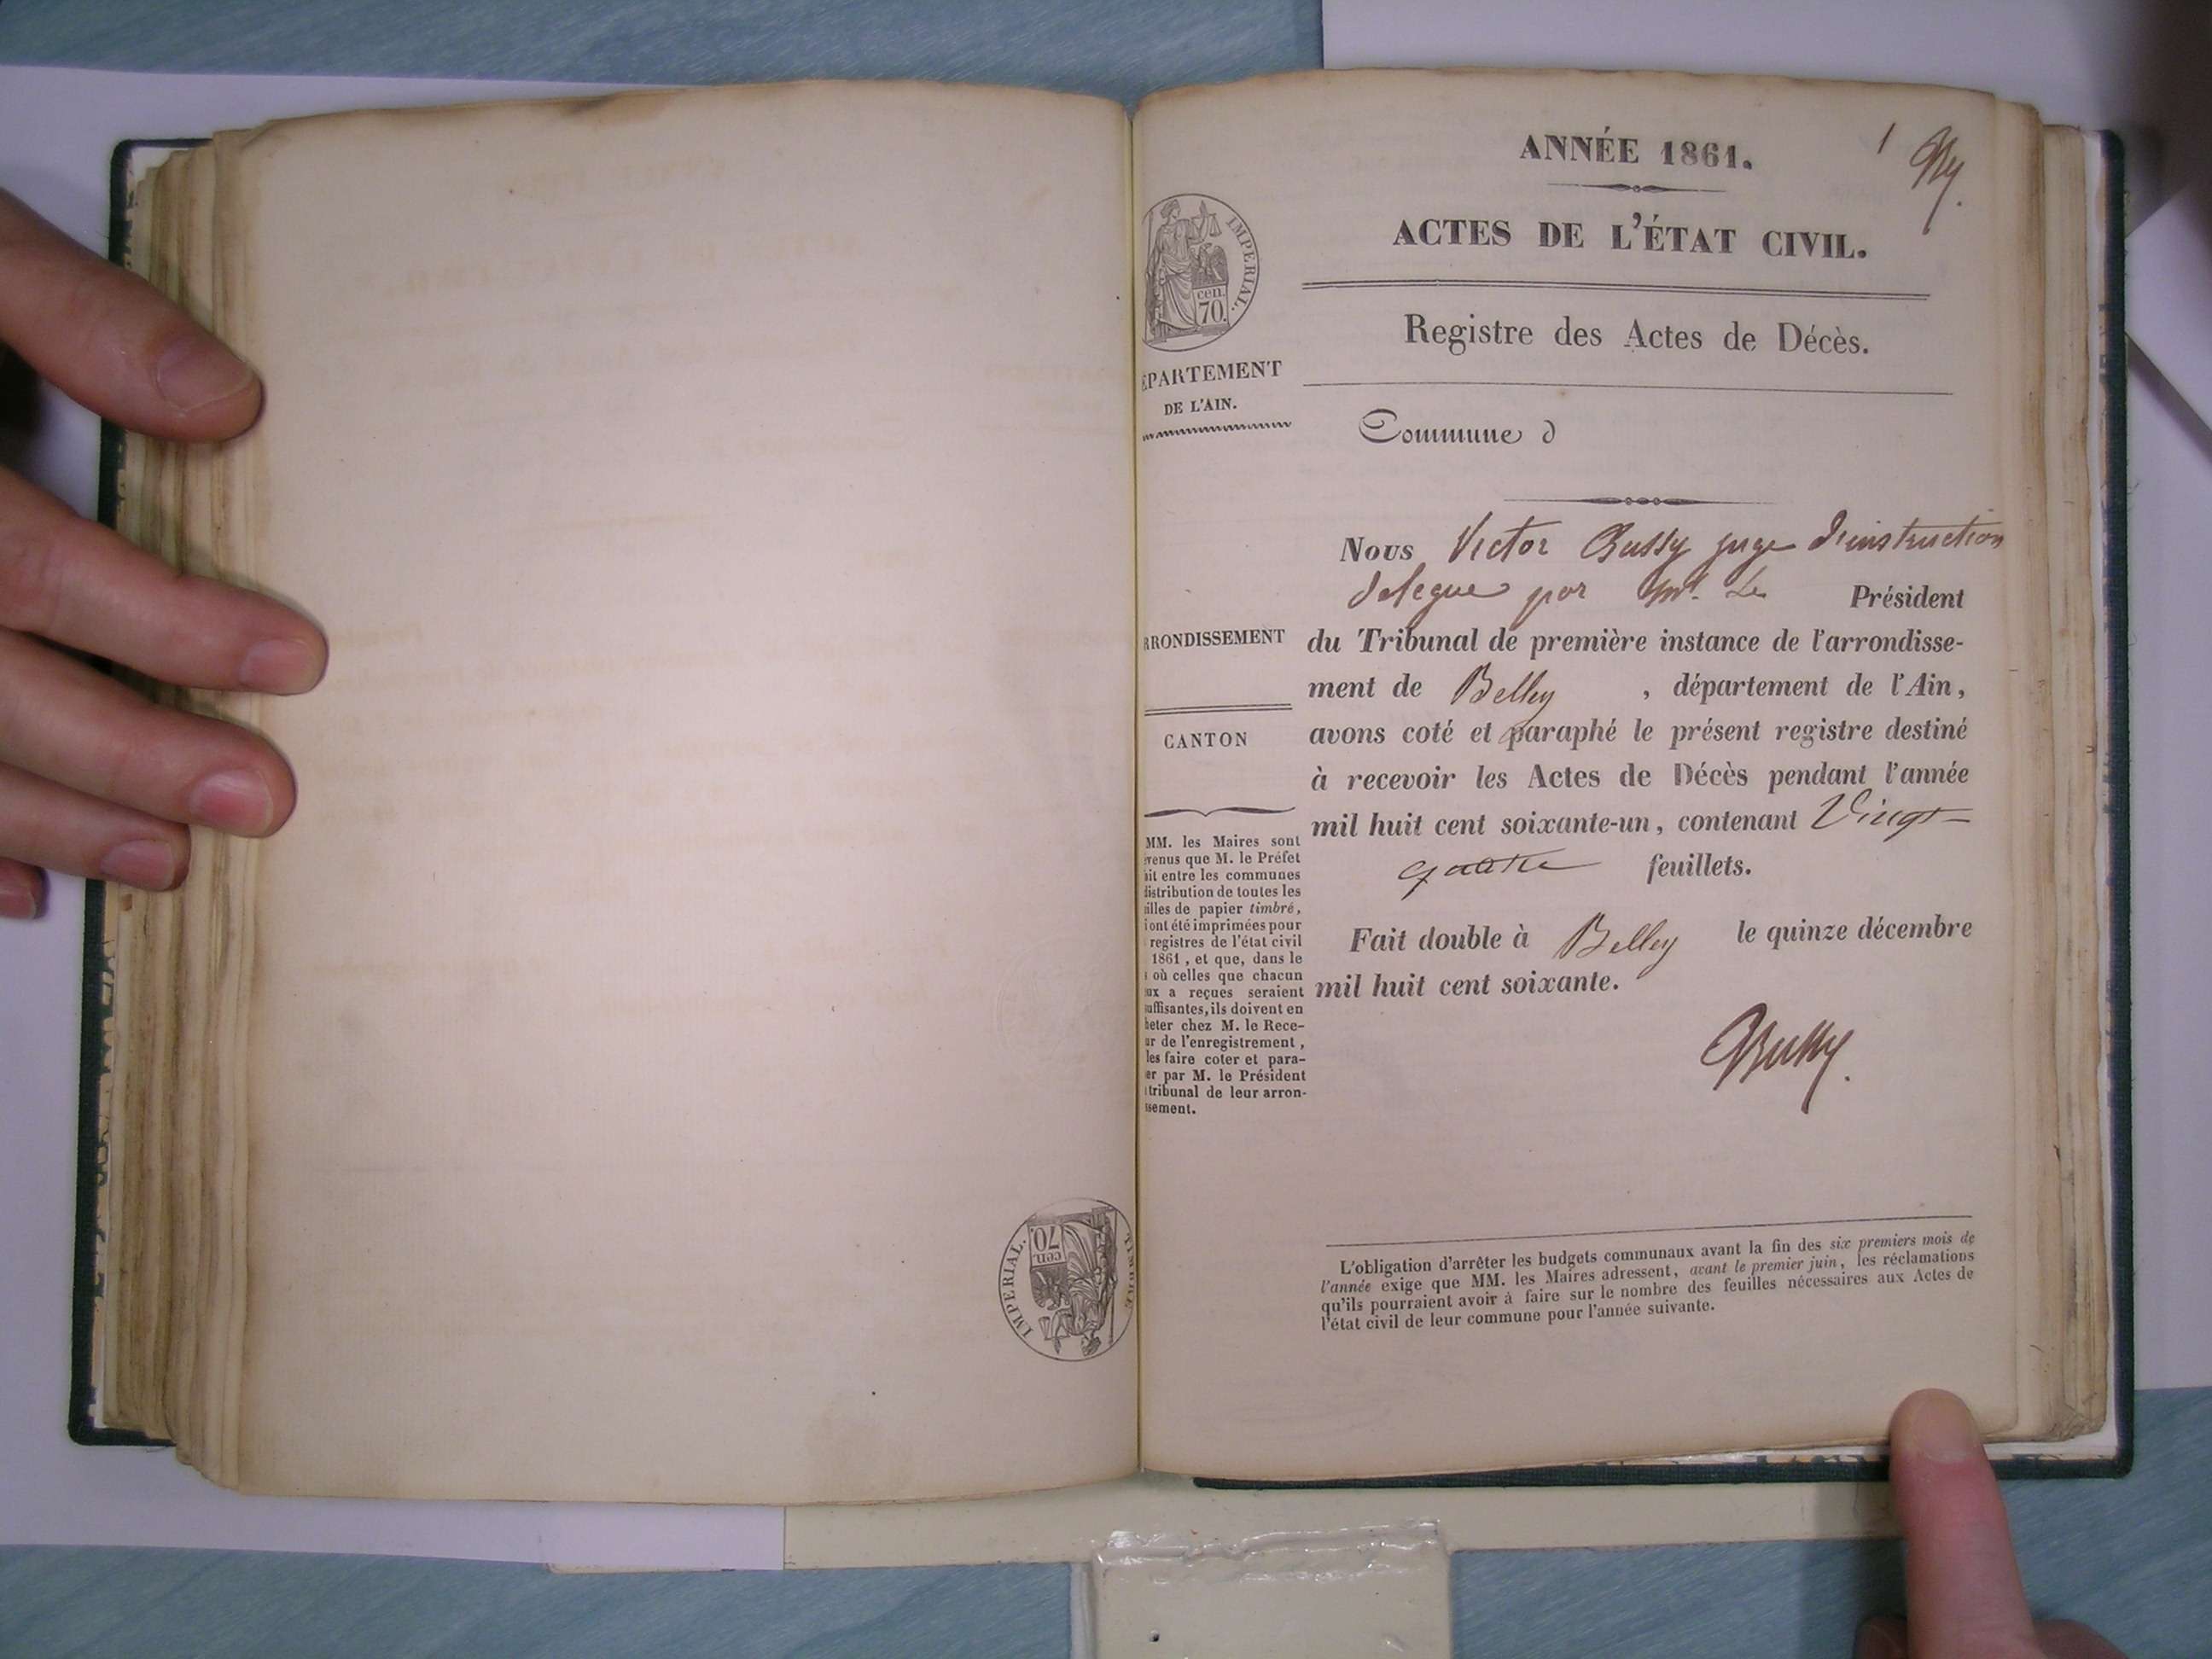 ANNÉE 1861.
1
ACTES DE L'ÉTAT CIVIL.
IMPERIAL.
cen.
70.
Registre des Actes de Décès.
ÉPARTEMENT
DE L'AIN.
Commune d
Nous Victor Bussy juge d'instruction
delegue par Mr. Le Président
RRONDISSEMENT
du Tribunal de première instance de l'arrondisse-
ment de Belley , département de l'Ain,
CANTON
avons coté et paraphé le présent registre destiné
à recevoir les Actes de Décès pendant l'année
mil huit cent soixante-un, contenant Vingt
quatre feuillets.
Fait double à Belley le quinze décembre
mil huit cent soixante.
Bussy.
MM. les Maires sont
venus que M. le Préfet
ait entre les communes
distribution de toutes les
illes de papier timbré,
i ont été imprimées pour
registres de l'état civil
1861, et que, dans le
s où celles que chacun
ux a reçues seraient
uffisantes, ils doivent en
heter chez M. le Rece-
ur de l'enregistrement,
les faire coter et para-
er par M. le Président
tribunal de leur arron-
ssement.
L'obligation d'arrêter les budgets communaux avant la fin des six premiers mois de
l'année exige que MM. les Maires adressent, avant le premier juin, les réclamations
qu'ils pourraient avoir à faire sur le nombre des feuilles nécessaires aux Actes de
l'état civil de leur commune pour l'année suivante.
IMPERIAL.
TIMBRE
cen.
70.